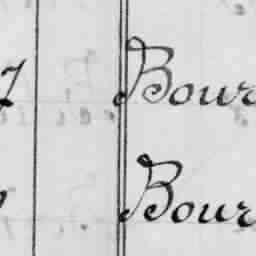 7 Bour
Bour